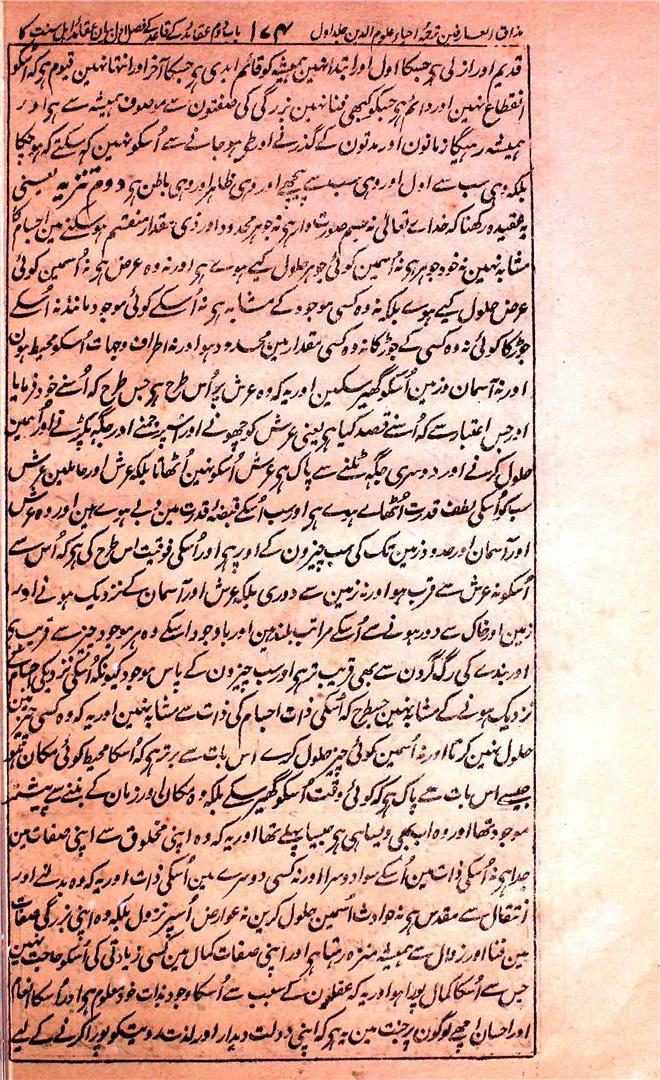 مذاق العارفین ترجمۂ احیاء علوم الدین جلد اول ۱۷۴ باب دوم عقائد کے قاعدے فصل اول بیان عقائد اہل سنت کا
قدیم اور ازلی ہے جسکا اول اور ابتدا نہین ہمیشہ کو قائم ابدی ہے جسکا آخر اور انتہا نہین قیوم ہے کہ اُسکو
انقطاع نہین اور دائم ہے جسکو کبھی فنا نہین بزرگی کی صفتون سے موصوف ہمیشہ سے ہے اور
ہمیشہ رہیگا زمانون اور مدتون کے گذرنے اور طے ہو جانے سے اُسکو نہین کہہ سکتے کہ ہو چکا
بلکہ وہی سب سے اول اور وہی سب سے پیچھے اور وہی ظاہر اور وہی باطن ہے دوم تنزیہ یعنی
یہ عقیدہ رکھنا کہ خداے تعالی نہ جسم صورت دار ہے نہ جوہر محدود اور ذی مقدار منقسم ہو سکنے مین اجسام کے
مشابہ نہین نہ خود جوہر ہے نہ اُسمین کوئی جوہر حلول کیے ہوے ہے اور نہ وہ عرض ہے نہ اُسمین کوئی
عرض حلول کیے ہوے بلکہ نہ وہ کسی موجود کے مشابہ ہے نہ اُسکے کوئی موجود مانند نہ اُسکے
جوڑ کا کوئی نہ وہ کسی کے جوڑ کا نہ وہ کسی مقدار مین محدود ہو اور نہ اطراف و جہات اُسکو محیط ہون
اور نہ آسمان و زمین اُسکو گھیر سکین اور یہ کہ وہ عرش پر اُس طرح ہے جس طرح کہ اُسنے خود فرمایا
اور جس اعتبار سے کہ اُسنے قصد کیا ہے یعنی عرش کو چھونے اور اسپر جمنے اور جگہ پکڑنے اور اُسمین
حلول کرنے اور دوسری جگہ ٹلنے سے پاک ہے عرش اُسکو نہین اُٹھاتا بلکہ عرش اور حاملین عرش
سب کو اُسکی لطف قدرت اُٹھاے ہوے ہے اور سب اُسکے قبضۂ قدرت مین دبے ہوے ہین اور وہ عرش
اور آسمان اور حدود زمین تک کی سب چیزون کے اوپر ہے اور اُسکی فوقیت اس طرح کی ہے کہ اُس سے
اُسکو نہ عرش سے قرب ہو اور نہ زمین سے دوری بلکہ عرش اور آسمان کے نزدیک ہونے اور
زمین اور خاک سے دور ہونے سے اُسکے مراتب بلند ہین اور باوجود اسکے وہ ہر موجود چیز سے قریب ہے
اور بندے کی رگ گردن سے بھی قریب تر ہے اور سب چیزون کے پاس موجود کیونکہ اُسکی نزدیکی اجسام کے
نزدیک ہونے کے مشابہ نہین جسطرح کہ اُسکی ذات اجسام کی ذات سے مشابہ نہین اور یہ کہ وہ کسی چیز مین
حلول نہین کرتا اور نہ اُسمین کوئی چیز حلول کرے اس بات سے برتر ہے کہ اُسکا محیط کوئی مکان ہو
جیسے اس بات سے پاک ہے کہ کوئی وقت اُسکو گھیر سکے بلکہ وہ مکان اور زمان کے بننے سے پیشتر
موجود تھا اور وہ اب بھی ویسا ہی ہے جیسا پہلے تھا اور یہ کہ وہ اپنی مخلوق سے اپنی صفات مین
جدا ہے نہ اُسکی ذات مین اُسکے سوا دوسرا اور نہ کسی دوسرے مین اُسکی ذات اور یہ کہ وہ بدلنے اور
انتقال سے مقدس ہے نہ حوادث اُسمین حلول کرین نہ عوارض اُسپر نزول بلکہ وہ اپنی بزرگی کی صفات
مین فنا اور زوال سے ہمیشہ منزہ رہتا ہے اور اپنی صفات کمال مین کسی زیادتی کی اُسکو حاجت نہین
جس سے اُسکا کمال پورا ہو اور یہ کہ عقلون کے سبب سے اُسکا وجود بذات خود معلوم ہے اور اُسکا انعام
اور احسان اچھے لوگون پر جنت مین یہ ہے کہ اپنی دولت دیدار اور لذت رویت کو پورا کرنے کے لیے